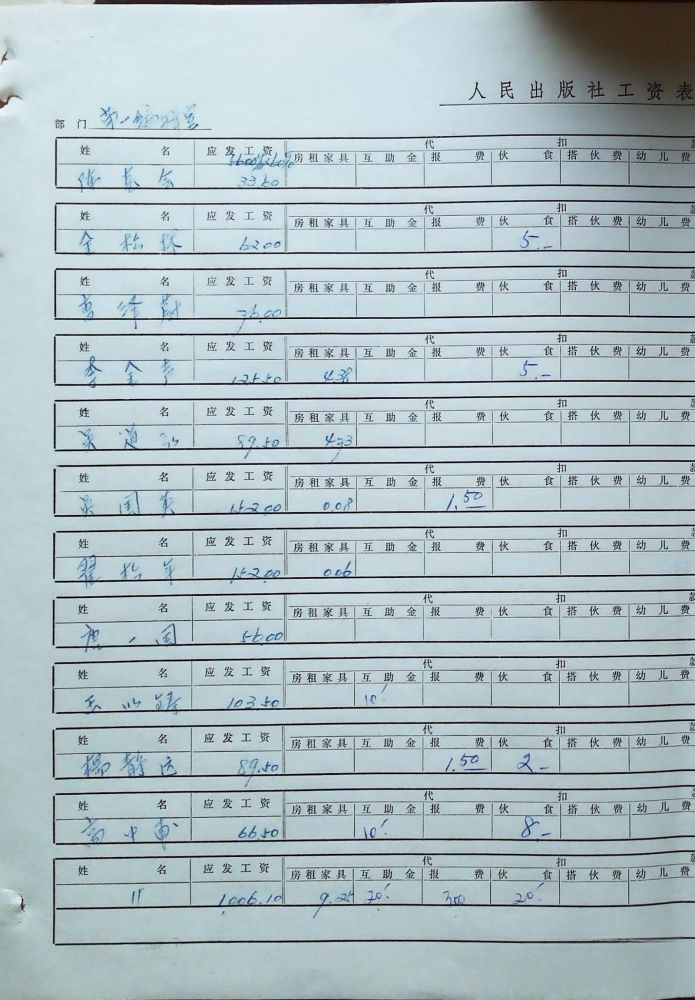 人民出版社工资表
部门 第一编
代
姓名 应发工资 房租家具 互助金 报费 伙食 搭伙费 幼儿费
33.60
代扣
姓名 应发工资 房租家具 互助金 报费 伙食 搭伙费 幼儿费
62.00 5.-
代扣
姓名 应发工资 房租家具 互助金 报费 伙食 搭伙费 幼儿费
76.00
代扣
姓名 应发工资 房租家具 互助金 报费 伙食 搭伙费 幼儿费
李金声 125.50 4.38 5.-
代扣
姓名 应发工资 房租家具 互助金 报费 伙食 搭伙费 幼儿费
吴道弘 89.50 4.73
代扣
姓名 应发工资 房租家具 互助金 报费 伙食 搭伙费 幼儿费
吴国英 152.00 0.08 1.50
代扣
姓名 应发工资 房租家具 互助金 报费 伙食 搭伙费 幼儿费
翟松年 152.00 0.06
代扣
姓名 应发工资 房租家具 互助金 报费 伙食 搭伙费 幼儿费
唐一国 56.00
代扣
姓名 应发工资 房租家具 互助金 报费 伙食 搭伙费 幼儿费
王以铸 103.50 10.-
代扣
姓名 应发工资 房租家具 互助金 报费 伙食 搭伙费 幼儿费
杨静远 89.50 1.50 2.-
代扣
姓名 应发工资 房租家具 互助金 报费 伙食 搭伙费 幼儿费
高中甫 66.50 10.- 8.-
代扣
姓名 应发工资 房租家具 互助金 报费 伙食 搭伙费 幼儿费
11 1,006.10 9.25 20.- 3.00 20.-